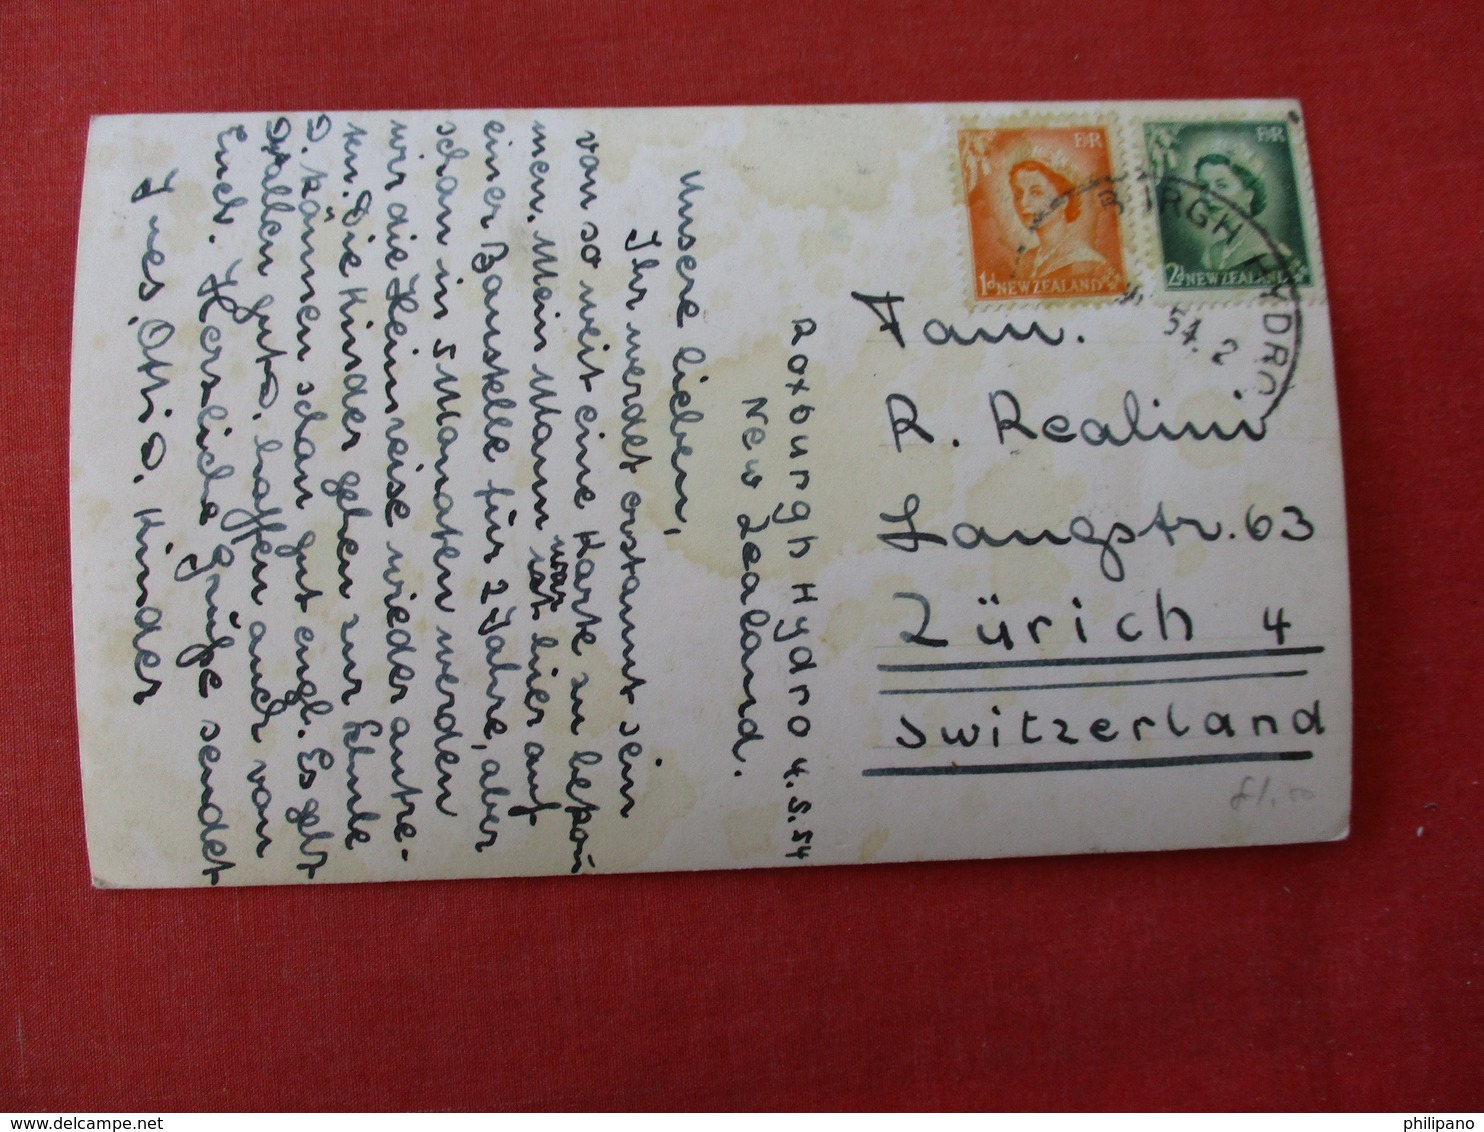 Roxburgh Hydro 4.5.54
New Zealand.
Unsere lieben,
Ihr werdet erstaunt sein
von so weit eine Karte zu bekom
men. Mein Mann war ist hier auf
einer Baustelle für 2 Jahre, aber
schon in 5 Monaten werden
wir die Heimreise wieder antre-
ten. Die Kinder gehen zur Schule
u. können schon gut engl. Es geht
allen gut u. hoffen auch von
Euch. Herzliche Grüße sendet
Ines, Otti u. Kinder
Fam.
R. Realini
Langstr. 63
Zürich 4
Switzerland
E II R
1d NEW ZEALAND
E II R
2d NEW ZEALAND
BURGH HYDRO
54. 2
philipano
delcampe.net